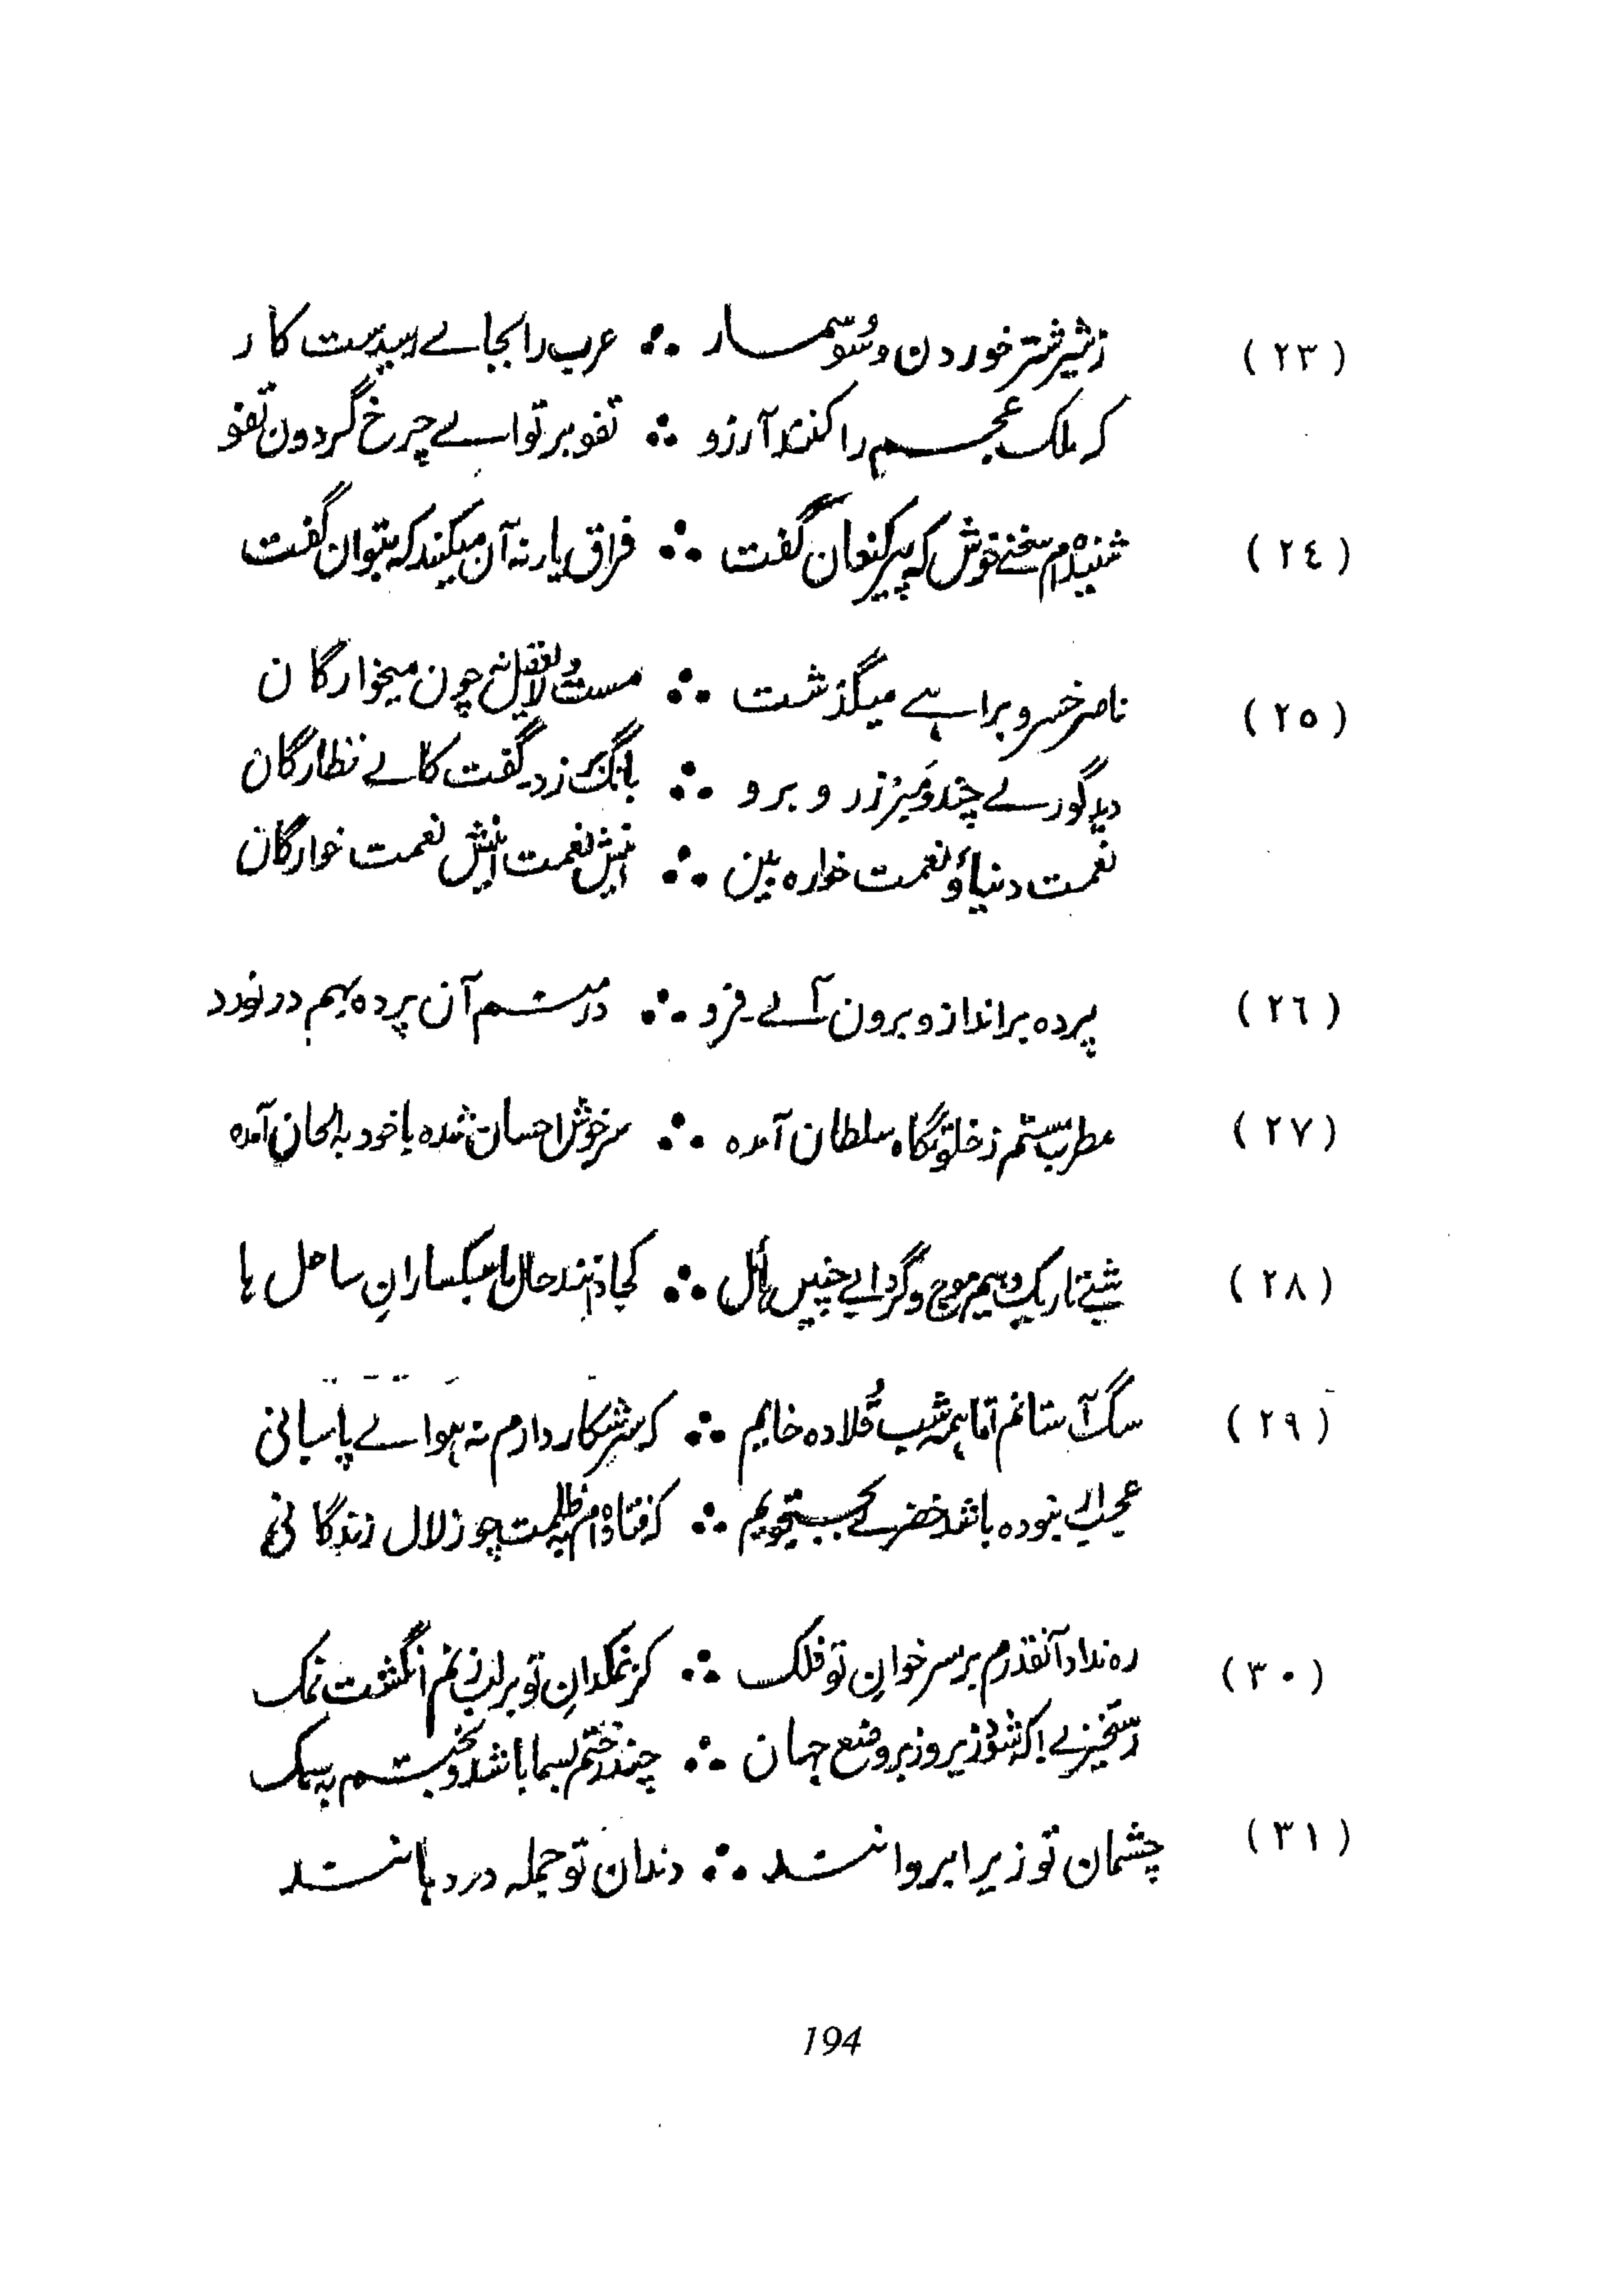 (٢٣) زشیر شتر خوردن و سوسمار ∴ عرب را بجاے رسیدست کار
کہ ملک عجم را کنند آرزو ∴ تفو بر تو اے چرخ گردون تفو
(٢٤) شنیدہ ام سخنے خوش کہ پیر کنعان گفت ∴ فراق یار نہ آن میکند کہ بتوان گفت
(٢٥) ناصر خسرو براہے میگذشت ∴ مست و لایعقل نہ چون میخوارگان
دید گورے چند و مبرز رو برو ∴ بانگ بر زد گفت کاے نظارگان
نعمت دنیا و نعمت خوارہ بین ∴ اینش نعمت اینش نعمت خوارگان
(٢٦) پردہ برانداز و برون آے فرو ∴ در منم آن پردہ بہم در نورد
(٢٧) مطرب مستم ز خلوتگاہ سلطان آمدہ ∴ سرخوش احسان شدہ با خود بہ الحان آمدہ
(٢٨) شبے تاریک و بیم موج و گردابے چنیں ہائل ∴ کجا دانند حال ما سبکسارانِ ساحل ہا
(٢٩) سگ آستانم اما ہمہ شب قُلادہ خایم ∴ کہ سر شکار دارم نہ ہواے پاسبانی
عجب ار نبودہ باشد خضرے بجستجویم ∴ کہ فتادہ ام بہ ظلمت چو زلال زندگانی
(٣٠) رہ نداد آنقدرم بر سر خوانِ تو فلک ∴ کز نمکدانِ تو بر لب زنم انگشت نمک
رستخیزے کہ شود زیر و زبر وضع جہان ∴ چند رختم بسما باشد و بختم بہ سمک
(٣١) چشمان تو زیرِ ابروانند ∴ دندان تو جملہ در دہانند
194